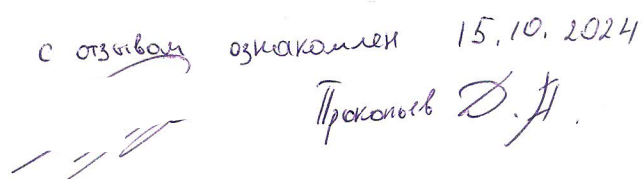 с отзывом ознакомлен 15.10.2024
Прокопьев Д.А.